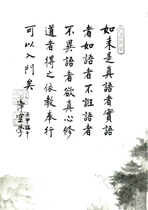 如来是真語者實語
者如語者不誑語者
不異語者欲真心修
道者得之依教奉行
可以入門矣